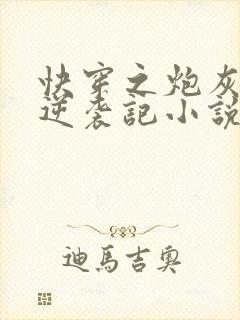 快穿之炮灰
逆袭記小説
迪馬吉奥